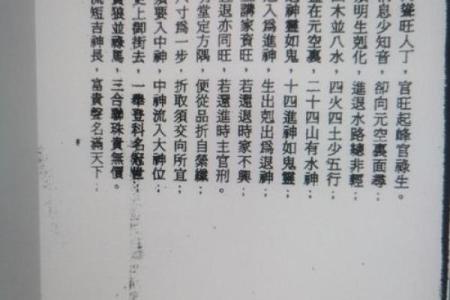 聳旺人丁，官旺起峰官祿生。
息少知音，卻向元空裏面尋：
明生剋化，進退水路總非輕：
木並八水，四火四土少五行：
在元空裏，二十四山有水神：
神靈如鬼，十四進神如鬼靈：
入為進神，生出剋出為退神：
家資旺，若還退時家不興：
退亦同旺，若還進時主官刑。
堂定方隅，便從品折自縈：
寸為一步，折取須交向所宜：
要入中神，中神流入大神位：
上御街去，一舉登科名冠世：
狼並祿馬，三合聯珠貴無價。
流短吉神長，富貴聲名滿天下：